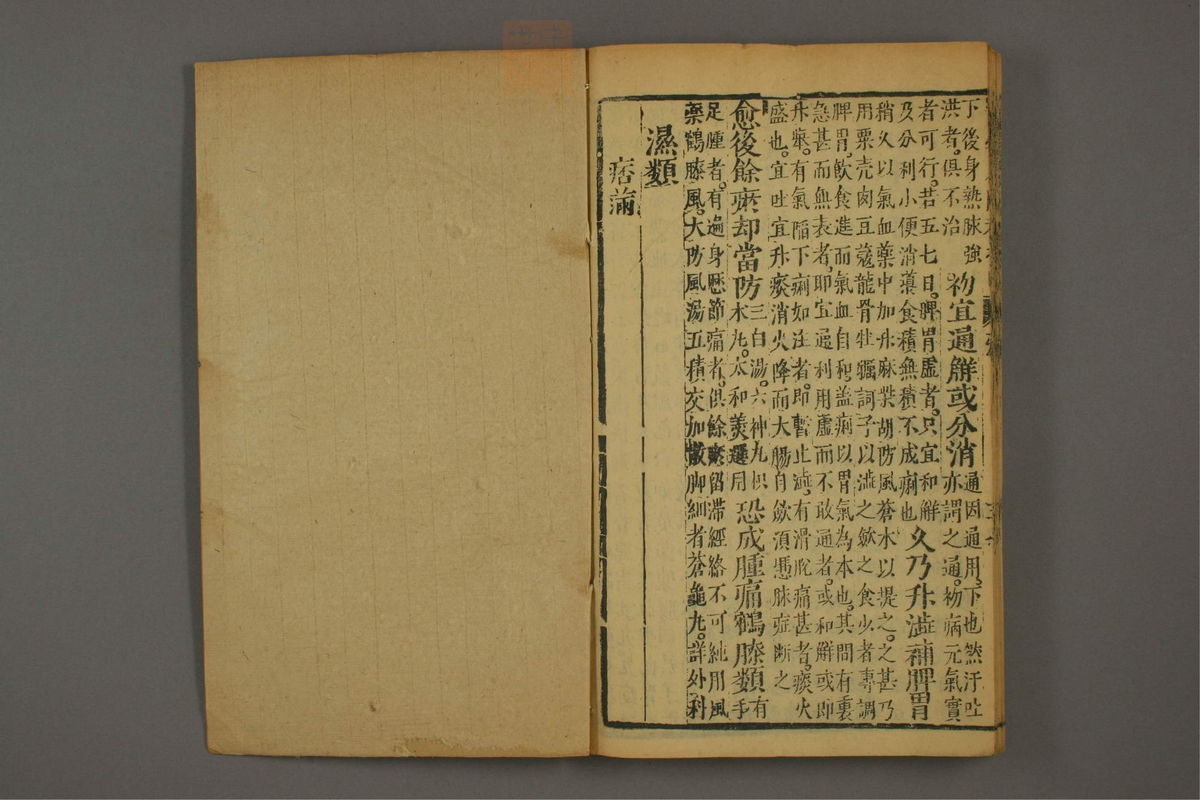 下後身熱脉強
洪者。俱不治
初宜通解或分消
通因通用。下也然汗吐
亦謂之通。初病元氣實
者可行。若五七日。脾胃虛者。只宜和解
及分利小便消導食積無積不成痢也
久乃升澁補脾胃
稍久以氣血藥中加升麻柴胡防風蒼术以提之。之甚乃
用粟壳肉豆蔻龍骨牡礪訶子以澁之歛之食少者專調
脾胃。飲食進而氣血自和。盖痢以胃氣為本也。其間有裏
急甚而無表者。即宜通利用虛而不敢通者。或和解或即
升舉。有氣陷下痢如注者。即暫止澁。有滑脫痛甚者。痰火
盛也。宜吐宜升痰消火降而大腸自歛須慿脉症断之
愈後餘瘀却當防
三白湯。六神丸
木丸。太和羮選用
恐成腫痛鶴膝類
有手
足腫者。有遍身歷節痛者。俱餘瘀留滯經絡不可純用風
藥鶴膝風。大防風湯五積交加散脚細者蒼龜丸。詳外科
濕類
痞滿